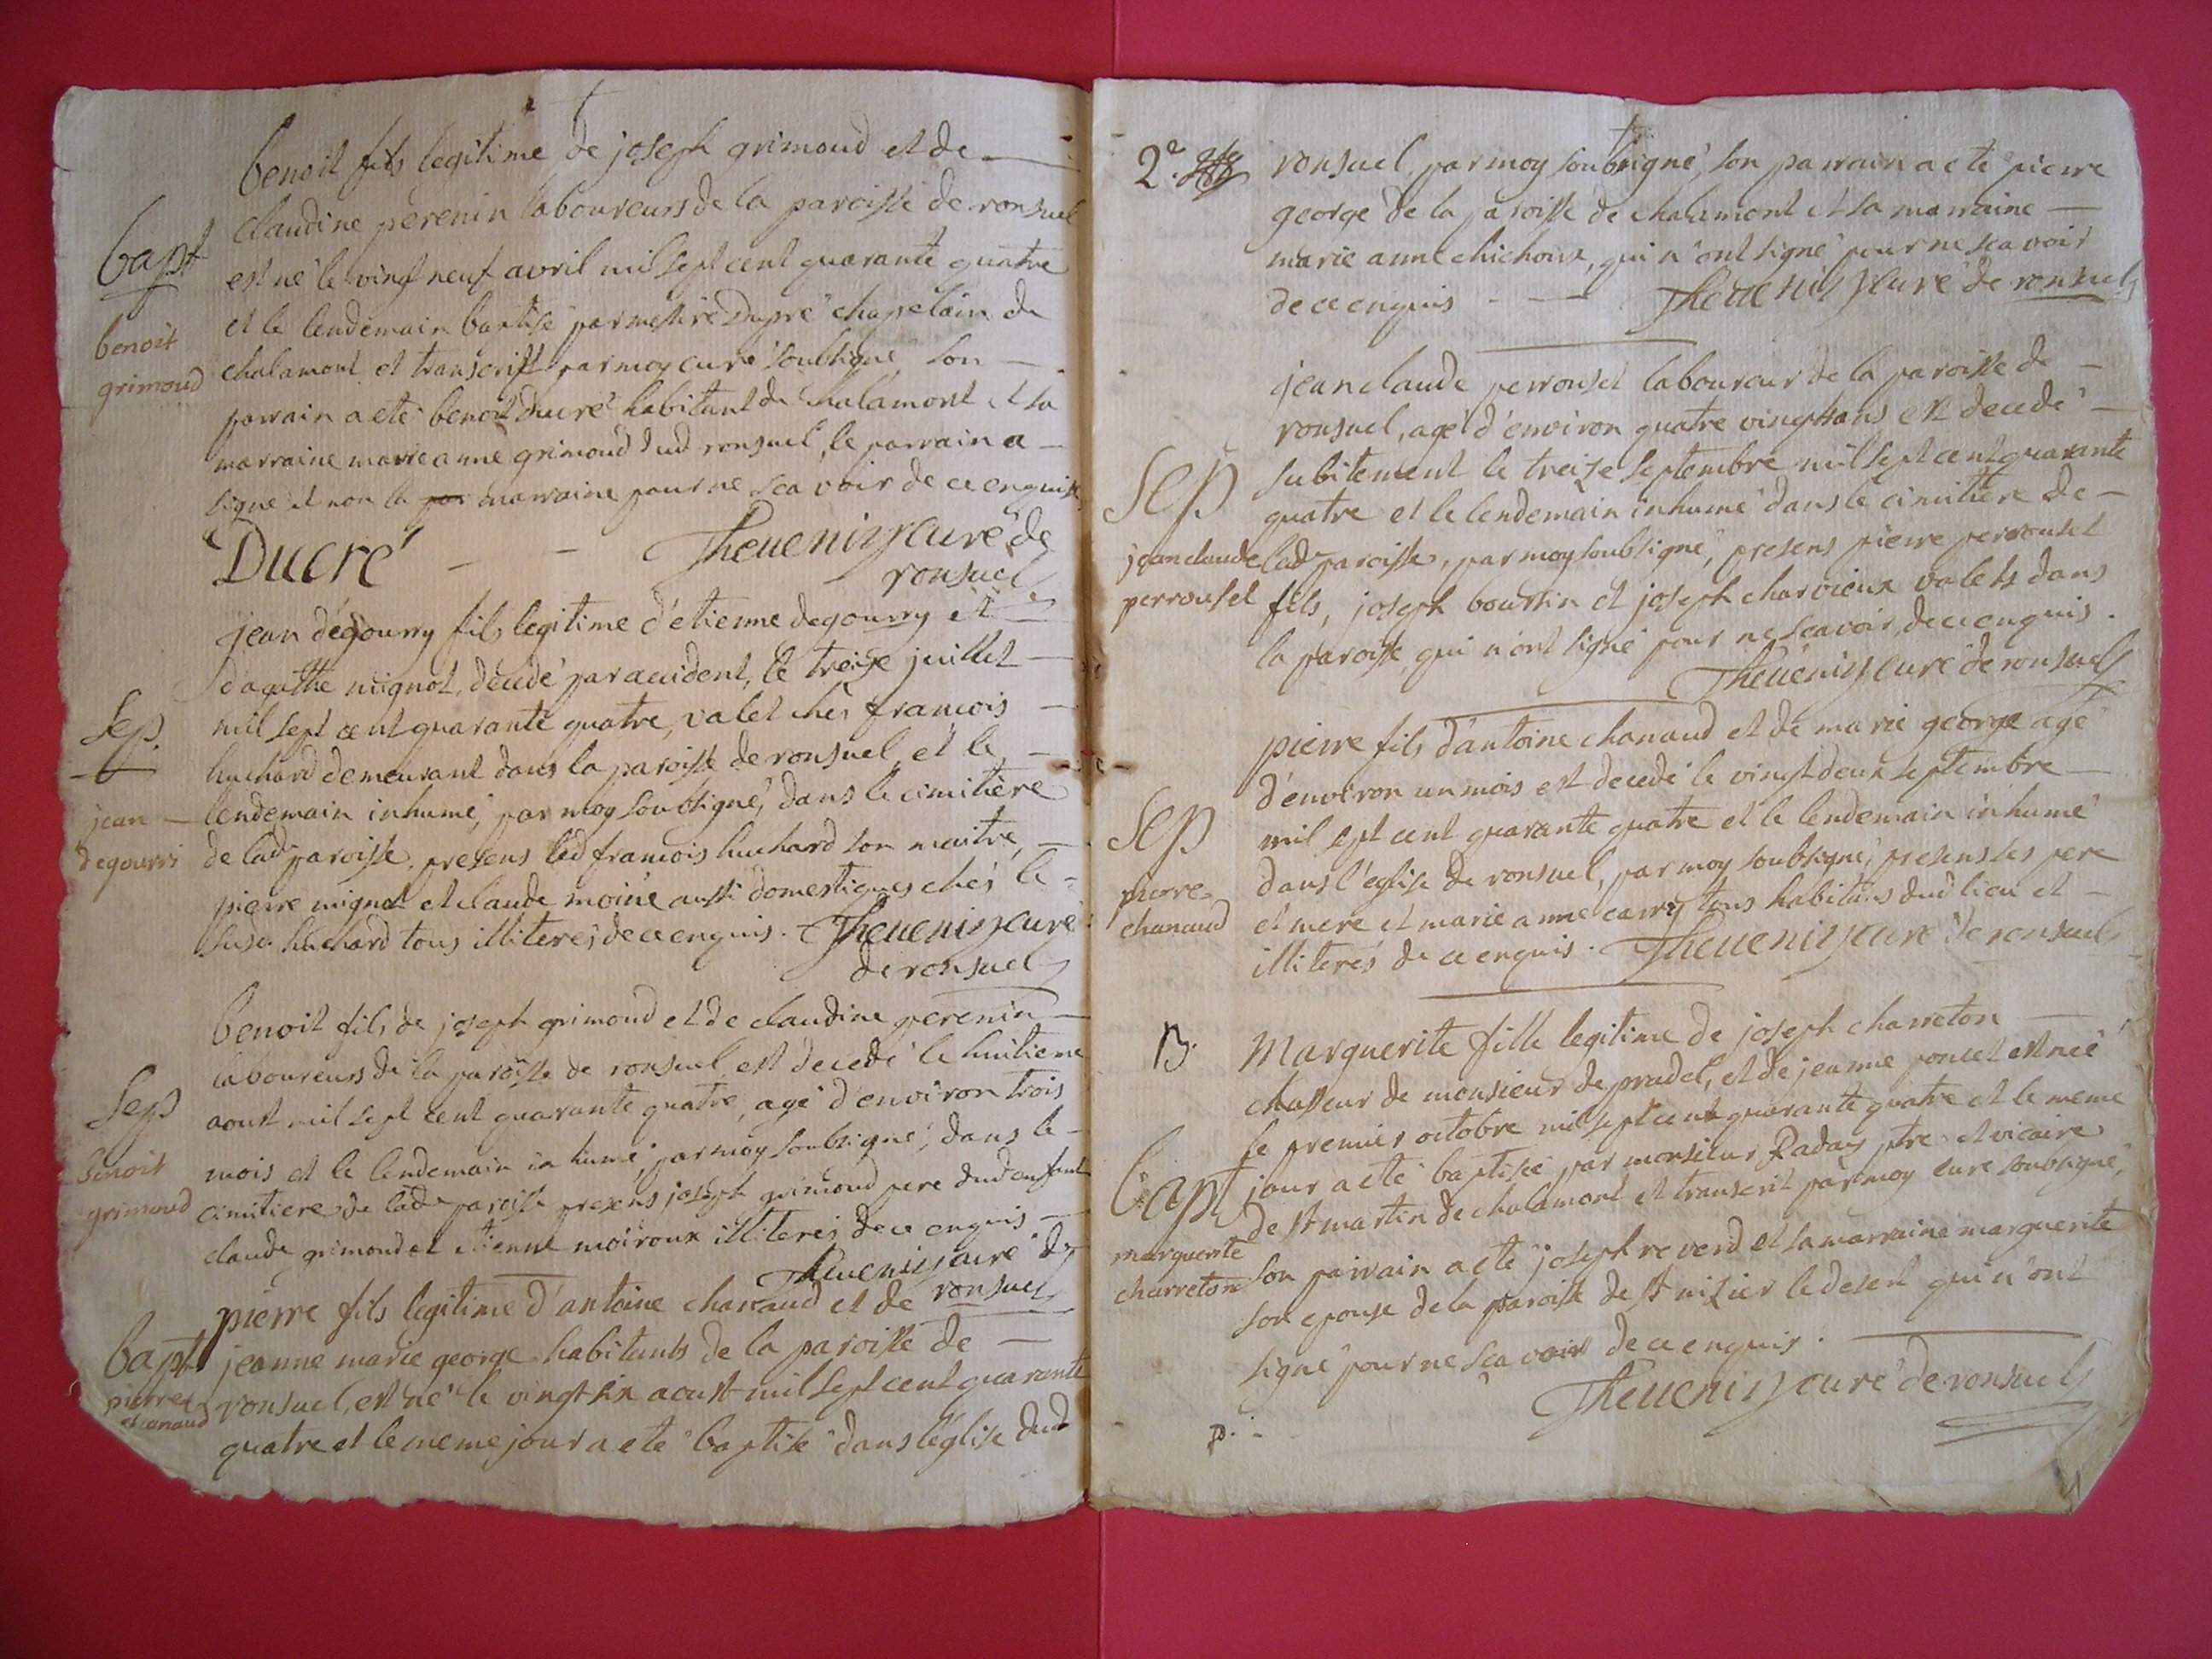 benoit fils legitime de joseph grimoud et de
claudine perenin laboureurs de la paroisse de ronsuel
bapt
est né le vingt neuf avril mil sept cent quarante quatre
et le lendemain baptisé par messire Dupré chapelain de
benoit
grimoud
chalamont et transcrift par moy curé soubsigné, son
parrain a eté benoit ducré habitant de chalamont et sa
marraine marie anne grimoud dud ronsuel, le parrain a
signé et non la par marraine pour ne scavoir de ce enquise
Ducré Thevenin curé de
ronsuel
jean dégourry fils legitime d'étienne degourry et
d'agathe mignot, decedé par accident, le treize juillet
Sep.
mil sept cent quarante quatre, valet chés francois
huchard demeurant dans la paroisse de ronsuel et le
jean
degourri
lendemain inhumé, par moy soubsigné, dans le cimitière
de lad paroisse, presens led francois huchard son maitre,
pierre mignot et claude moine aussi domestiques chés le
huchard tous illiterés de ce enquis. Thevenin curé
de ronsuel
benoit fils de joseph grimoud et de claudine perenin
laboureurs de la paroisse de ronsuel, est decedé le huitieme
Sep
aoust mil sept cent quarante quatre, agé d'environ trois
mois et le lendemain inhumé, par moy soubsigné, dans le
benoit
grimoud
cimitiere de lade paroisse presens joseph grimoud pere dud enfant
claude grimoud et etienne moiroux illiterés de ce enquis
Thevenin curé de
ronsuel
pierre fils legitime d'antoine chanaud et de
bapt
jeanne marie george habitants de la paroisse de
pierre
chanaud
ronsuel, est né le vingt six aoust mil sept cent quarante
quatre et le meme jour a eté baptisé dans l'église dud
2e.
ronsuel, par moy soubsigné, son parrain a eté pierre
george de la paroisse de chalamont et sa marraine
marie anne chichoux, qui n'ont signé pour ne scavoir
de ce enquis Thevenin curé de ronsuel
jean claude perrouset laboureur de la paroisse de
ronsuel, agé d'environ quatre vingt ans est decedé
Sep
subitement le treize septembre mil sept cent quarante
quatre et le lendemain inhumé dans le cimitière de
jean claude
perrouset
lade paroisse, par moy soubsigné, presens pierre perrouset
fils, joseph boursin et joseph charvieux valets dans
la paroisse, qui n'ont signé pour ne scavoir, de ce enquis.
Thevenin curé de ronsuel
pierre fils d'antoine chanaud et de marie george agé
d'environ un mois est decedé le vingt deux septembre
Sep
mil sept cent quarante quatre et le lendemain inhumé
pierre
chanaud
dans l'eglise de ronsuel, par moy soubsigné, presens ses pere
et mere et marie anne carry tous habitans dud lieu et
illiterés de ce enquis. Thevenin curé de ronsuel
B.
Marguerite fille legitime de joseph charreton
chasseur de monsieur de pradel, et de jeanne poncet est née
le premier octobre mil sept cent quarante quatre et le meme
bapt
jour a eté baptisée par monsieur Raday ptre et vicaire
de st martin de chalamont et transcrit par moy curé soubsigné,
marguerite
charreton
son parrain a eté joseph reverd et sa marraine marguerite
son epouse de la paroisse de st nizier le desert qui n'ont
signé pour ne scavoir de ce enquis.
Thevenin curé de ronsuel
p.